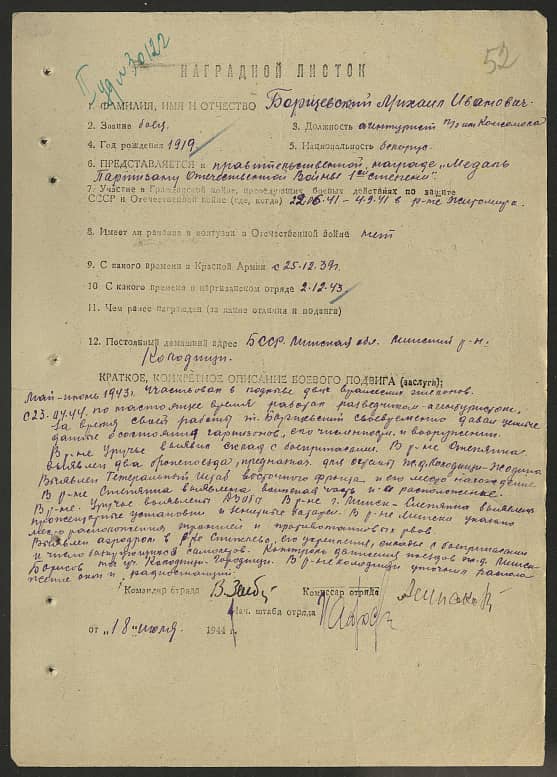 52
НАГРАДНОЙ ЛИСТОК
1. ФАМИЛИЯ, ИМЯ И ОТЧЕСТВО Борщевский Михаил Иванович.
2. Звание боец. 3. Должность агентурист п/о им Комсомола
4. Год рождения 1919 5. Национальность белорус.
6. ПРЕДСТАВЛЯЕТСЯ к правительственной награде „Медаль
Партизану Отечественной Войны 1ой степени"
7. Участие в Гражданской войне, последующих боевых действиях по защите
СССР и Отечественной войне (где, когда) 22.06.41 - 4.9.41 в р-не Житомира.
8. Имеет ли ранения и контузии в Отечественной войне нет
9. С какого времени в Красной Армии с 25.12.39г.
10 С какого времени в партизанском отряде 2.12.43.
11. Чем ранее награжден (за какие отличия и подвиги)
12. Постоянный домашний адрес БССР. Минская обл. Минский р-н.
Колодищи.
КРАТКОЕ, КОНКРЕТНОЕ ОПИСАНИЕ БОЕВОГО ПОДВИГА (заслуги);
Май-июнь 1943г. Участвовал в подрыве двух вражеских эшелонов.
С 23.04.44. по настоящее время работал разведчиком-агентуристом,
за время своей работы т. Борщевский своевременно давал ценные
данные о состоянии гарнизонов, его численности и вооружении.
В р-не Уручье выявил склад с боеприпасами. В р-не Степянка
выявлен два бронепоезда, предназнач. для охраны ж.д. Колодищи-Жодино
Выявлен Генеральный Штаб восточного фронта и его место нахождение
В р-не Степянка выявлена воинская часть и её расположение.
В р-не. Уручье выявлены В р-не г. Минск-Слепянка выявлены
прожекторные установки и зенитные батареи. В р-не Минска указано
место расположения траншей и противотанковых рвов.
Выявлен аэродром в р-не его укрепления, склады с боеприпасами
и число самолетов. Контроль движения поездов по ж.д. Минск-
Борисов на уч. Колодищи-Городище. В р-не Колодищи уточнил располо-
жение и радиостанций.
Командир отряда Комиссар отряда
Нач. штаба отряда
от "18" июля 1944 г.